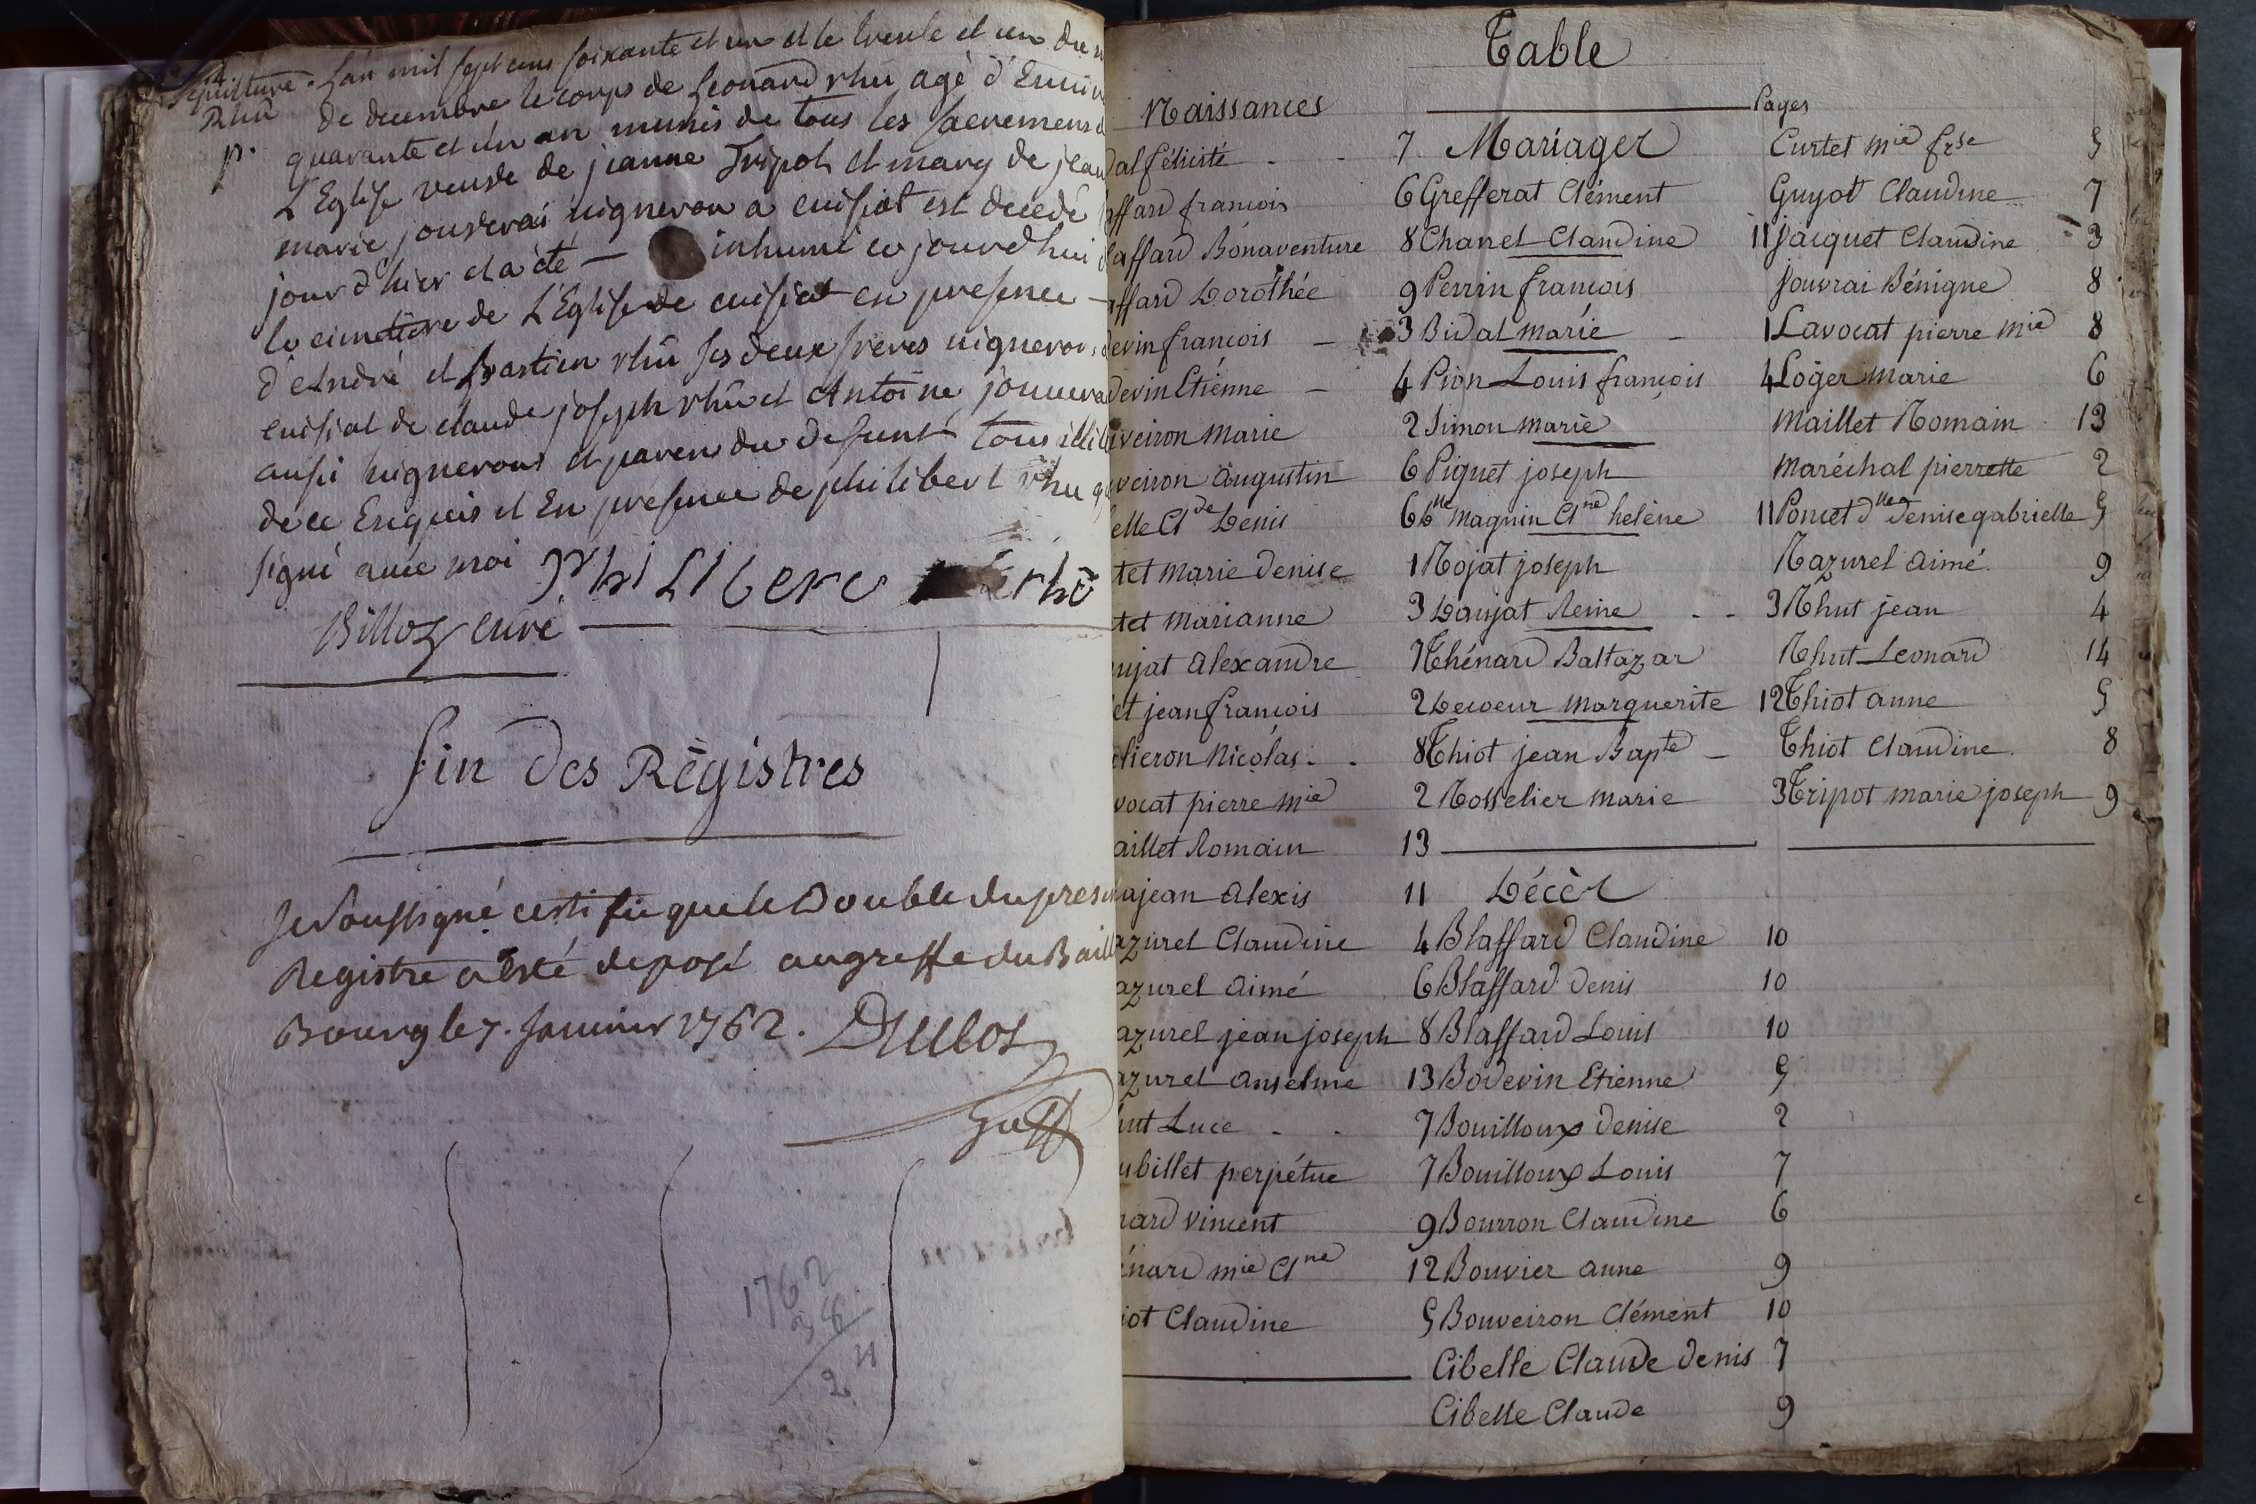 Sepulture. L'an mil sept cens soixante et un et le trente et un du
Rhu de decembre le corps de Leonard rhu agé d'Envir
p. quarante et un an munis de tous les sacremens d
L'Eglise veuse de jeanne Tripot et mary de jean
marie jouverai uigneron a cuisiat est decedé
jour d'hier et a été — inhumé ce jourd'hui d
le cimetiere de L'Eglise de cuisiat en presence —
d'eAndré et sbastien rhû ses deux freres uignerons
cuisiat de claude joseph rhû et Antoine jouuera
aussi uignerons et paren du defunt tous illit
de ce Enquis et En presence de philibert rhu q
signé auec moi philiberc rhû
Billoz curé
fin des Règistres
Je soussigné certifie que le Double du present
Registre a esté deposé au greffe du Baill
Bourg le 7. Janvier 1762. Dubos
Greff
1762
36
2
Table
Naissances
Pages
dal félicité - - 7
affard francois 6
laffard Bonaventure 8
affard Dorothée 9
devin francois — 3
devin Etienne — 4
uveiron Marie 2
uveiron augustin 6
elle Cl de Denis 6
tet marie denise 1
tet marianne 3
ujat alexandre 7
let jean francois 2
elieron Nicolas. . 8
vocat pierre mie 2
aillet Romain 13
ajean alexis 11
azurel Claudine 4
azurel aimé 6
azurel jean joseph 8
azurel anselme 13
hut Luce - - 7
ubillet perpétue 7
nard vincent 9
énard mie Cl ne 12
iot Claudine 5
Mariages
Grefferat Clément
Chanel Claudine 11
Perrin francois
Bidal marie - 1
Pion Louis françois 4
Simon marie
Piquet joseph
lle magnin Cl ne hélène 11
Rojat joseph
Daujat Reine - - 3
Thénard Baltazar
Decoeur marguerite 12
Thiot jean Bapte —
Rosselier marie 3
Décès
Blaffard Claudine 10
Blaffard Denis 10
Blaffard Louis 10
Bodevin Etienne 5
Bouilloux Denise 2
Bouilloux Louis 7
Bourron Claudine 6
Bouvier anne 9
Bouveiron Clément 10
Cibelle Claude denis 7
Cibelle Claude 9
Curtet mie frse 5
Guyot Claudine 7
jacquet Claudine - 3
jouvrai Bénigne 8
Lavocat pierre mie 8
Loger marie 6
Maillet Romain 13
Maréchal pierrette 2
Poncet dlle Denise gabrielle 5
Razurel aimé 9
Rhut jean 4
Rhut Leonard 14
Thiot anne 5
Thiot Claudine 8
Tripot marie joseph 9